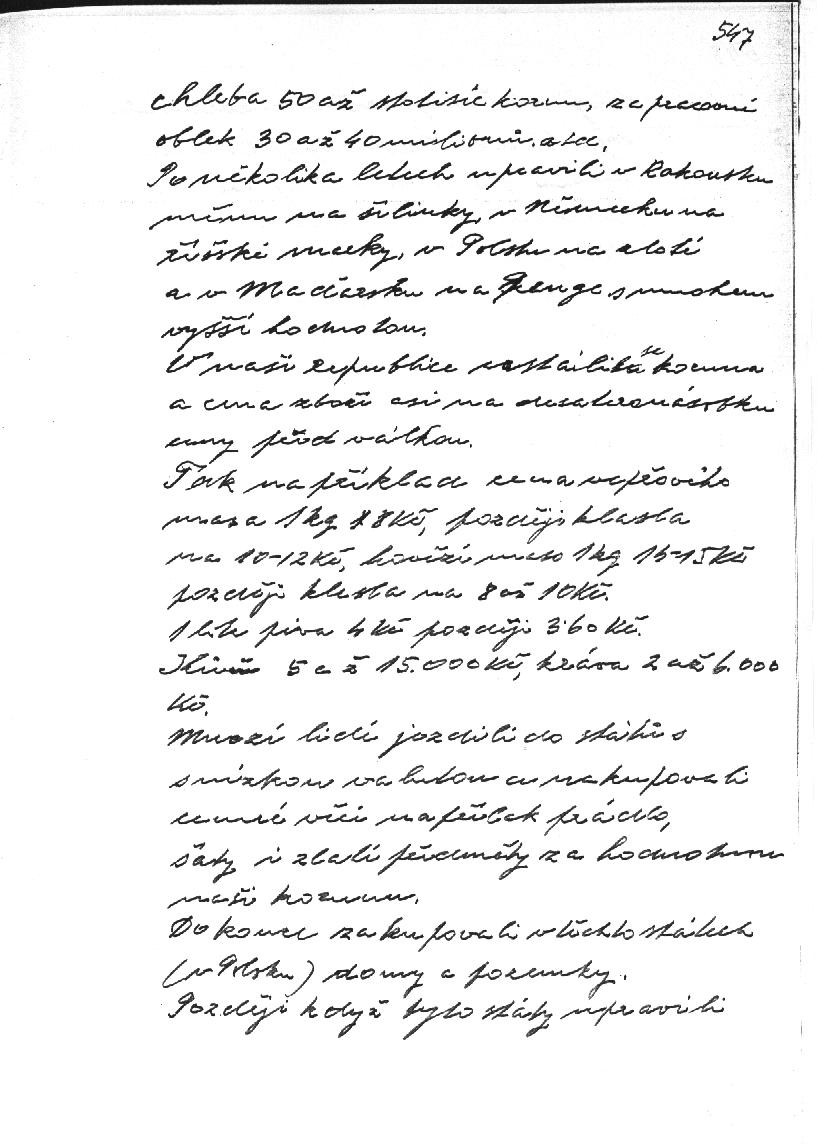 547
chleba 50 až stotisíc korun, za pracovní
oblek 30 až 40 milionů. atd.
Po několika letech upravili v Rakousku
měnu na šilinky, v Německu na
říšské marky, v Polsku na zloté
a v Maďarsku na Penge s mnohem
vyšší hodnotou.
V naši republice ustálila se koruna
a cena zboží asi na desateronásobku
ceny před válkou.
Tak na příklad cena vepřového
masa 1 kg 18 Kč, později klesla
na 10-12 Kč, hovězí maso 1 kg 15 Kč
později klesla na 8 až 10 Kč.
1 litr piva 4 Kč později 3.60 Kč.
5 až 15.000 Kč, kráva 2 až 6.000
Kč.
Mnozí lidé jezdili do států s
nízkou valutou a nakupovali
cenné věci na příklad prádlo,
šaty i zlaté předměty za hodnotnou
naši korunu.
Dokonce zakupovali v těchto státech
(v Polsku) domy a pozemky.
Později když tyto státy upravili